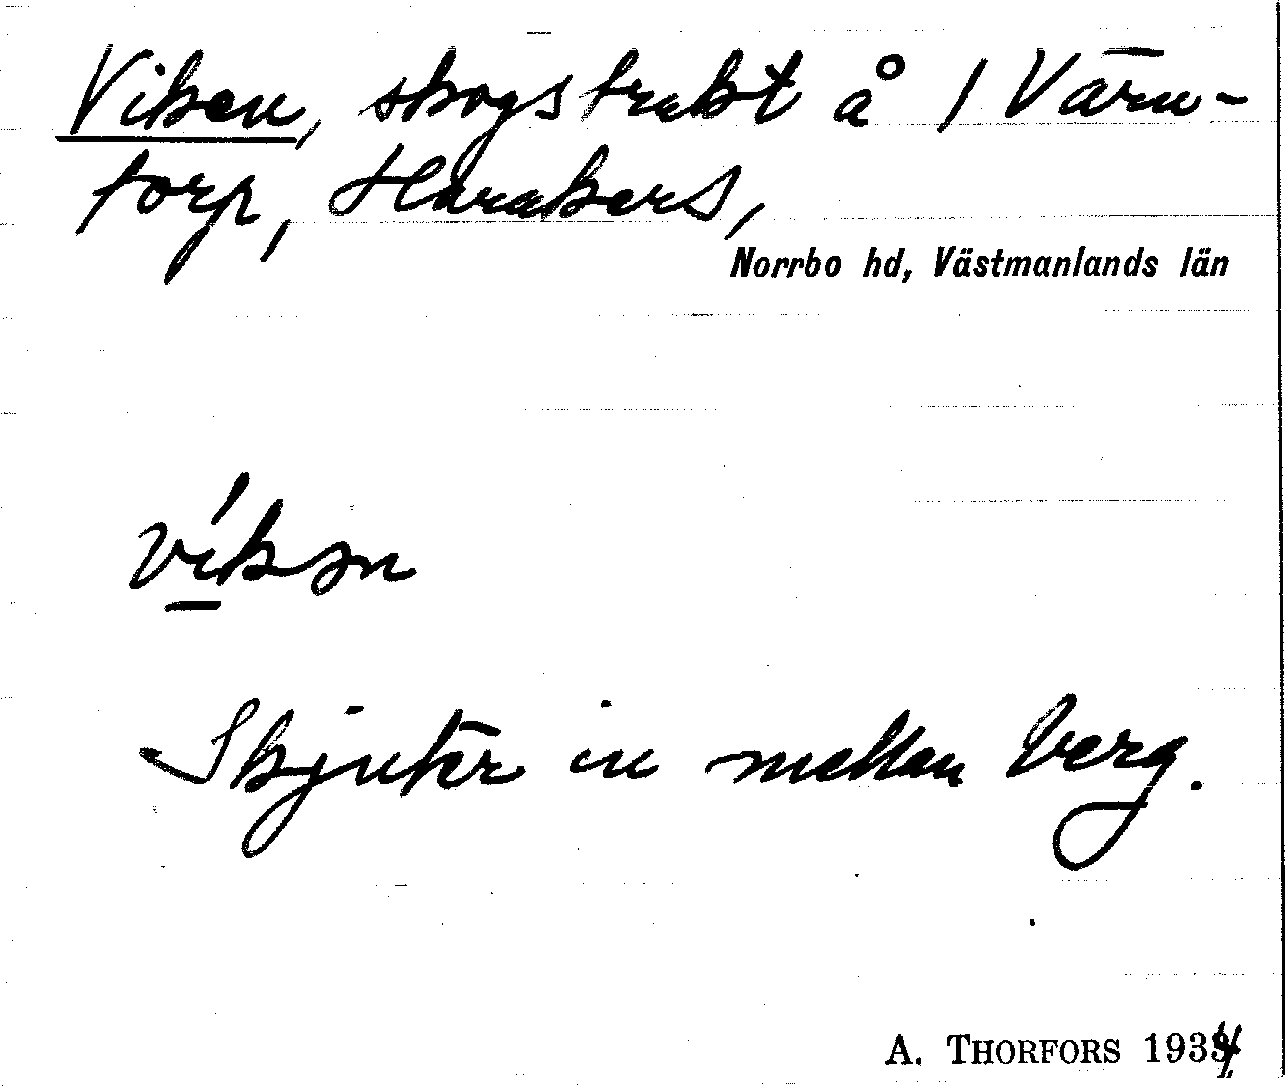 Viken, skogstrakt å 1 Värn-
torp, Harakers,
Norrbo hd, Västmanlands län
víkən
Skjuter in mellan berg.
A. THORFORS 1934